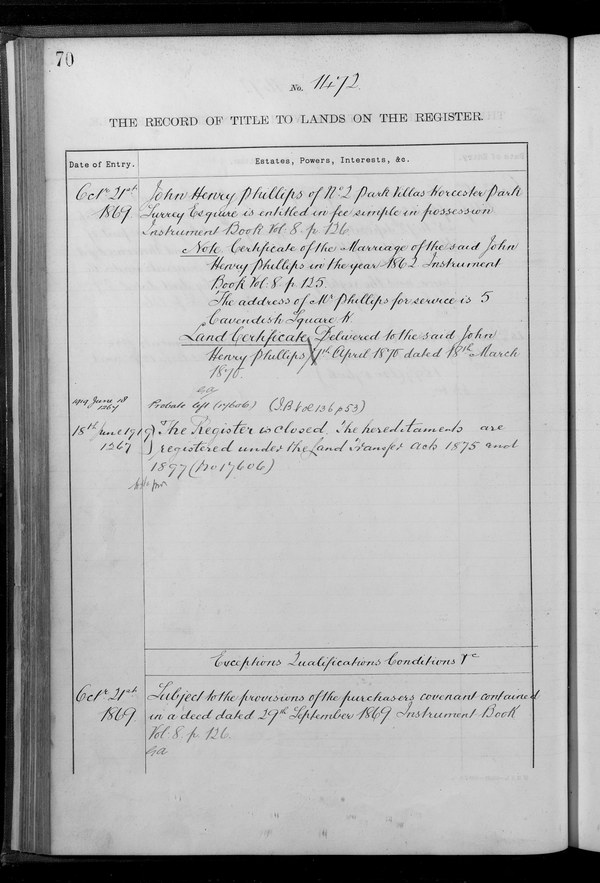 70
No. 1472.
THE RECORD OF TITLE TO LANDS ON THE REGISTER.
Date of Entry. Estates, Powers, Interests, &c.
Octr 21st 1869 John Henry Phillips of No 2 Park Villas Worcester Park
Surrey Esquire is entitled in fee simple in possession
Instrument Book Vol. 8. p. 126
Note Certificate of the Marriage of the said John
Henry Phillips in the year 1862 Instrument
Book Vol. 8. p 125.
The address of Mr Phillips for service is 5
Cavendish Square W
Land Certificate Delivered to the said John
Henry Phillips 7th April 1870 dated 18th March
1870.
1919 June 18 1367 Probate left (17606) (I.B Vol 136 p 53)
18th June 1919 1367 The Register is closed. The hereditaments are
registered under the Land Transfer Acts 1875 and
1897 (No 17606)
Exceptions Qualifications Conditions &c
Octr 21st 1869 Subject to the provisions of the purchasers covenant contained
in a deed dated 29th September 1869 Instrument Book
Vol. 8. p. 126.